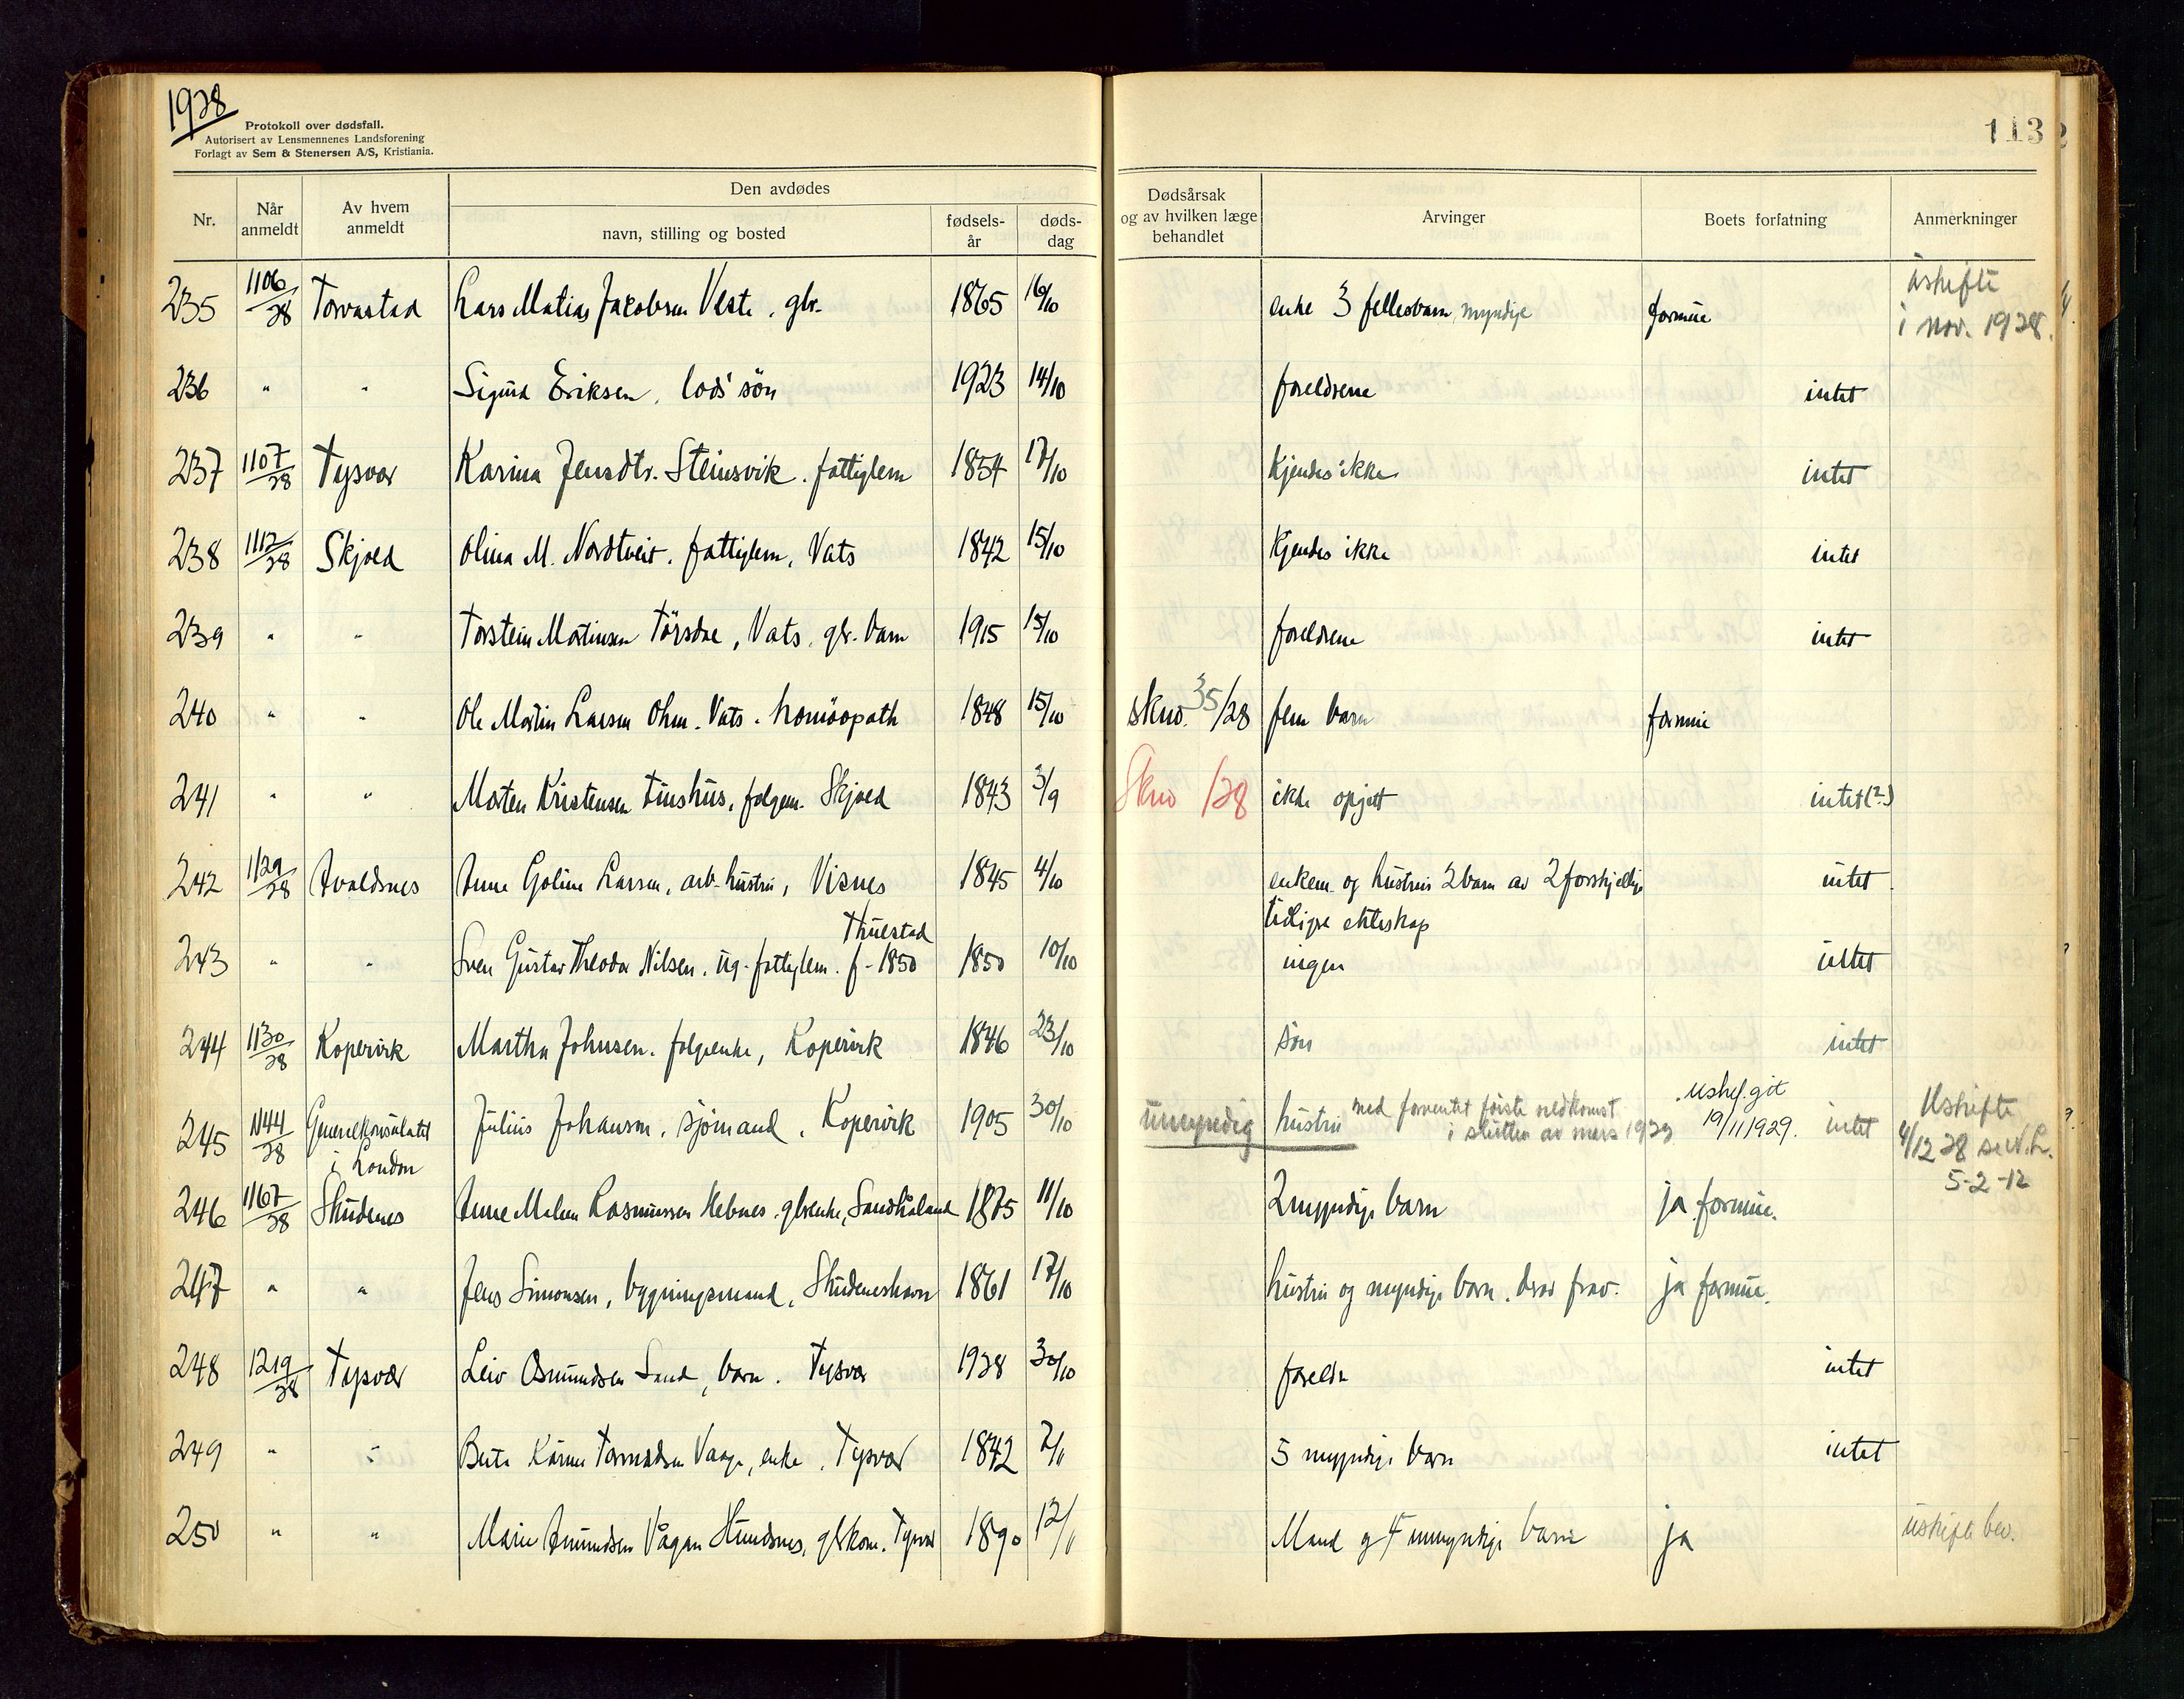 1928
Protokoll over dødsfall.
Autorisert av Lensmennenes Landsforening
Forlagt av Sem & Stenersen A/S, Kristiania.
113
Nr. Når anmeldt Av hvem anmeldt Den avdødes navn, stilling og bosted fødsels-år døds-dag Dødsårsak og av hvilken læge behandlet Arvinger Boets forfatning Anmerkninger
235 1106/28 Torvastad Lars Matias Jakobsen Veste, gbr. 1865 16/10 enke 3 fellesbarn myndige formue uskifte i nov. 1928.
236 " " Sigurd Eriksen, lods' søn 1923 14/10 foreldrene intet
237 1107/28 Tysvær Karina Jensdtr. Steinsvik. fattiglem 1854 17/10 Kjendes ikke intet
238 1112/28 Skjold Olina M. Nordtveit, fattiglem, Vats 1842 15/10 Kjendes ikke intet
239 " " Torstein Martinsen Tørsdal, Vats, gbr. barn 1915 15/10 foreldrene intet
240 " " Ole Martin Larsen Ohm. Vats. homöopath 1848 15/10 skuv. 35/28 fem barn formue
241 " " Morten Kristensen Tinshus, folgem. Skjold 1843 3/9 Skuv /28 ikke opgitt intet (?)
242 1129/28 Avaldsnes Anne Goline Larsen, arb. hustru, Visnes 1845 4/10 enkem. og hustrus 2 barn av 2 forskjellige intet
tidligere ekteskap
Thuestad
243 " " Sven Gustav Theodor Nilsen. ug. fattiglem. f. 1850 1850 10/10 ingen intet
244 1130/28 Kopervik Martha Johnsen. folgeenke, Kopervik 1846 23/10 søn intet
245 1144/28 Generalkonsulatet i London Julius Johansen, sjømand, Kopervik 1905 30/10 umyndig hustru med forventet første nedkomst i slutten av mars 1929 uskf. git 19/11 1929. intet Uskifte 4/12 28 se N.L. 5-2-12
246 1167/28 Skudenes Anne Malene Rasmussen Hebnes. gbrenke, Sandhåland 1875 11/10 2 myndige barn ja formue.
247 " " Jens Simonsen, bygningsmand, Skudeneshavn 1861 17/10 hustru og myndige barn. ja formue.
248 1219/28 Tysvær Leiv Osmundsen Sand, barn. Tysvær 1928 30/10 foreldr intet
249 " " Berte Karine Tormodsen Vaage, enke. Tysvær 1842 2/11 5 myndige barn intet
250 " " Marie Amundsen Vågan Hundsnes, gbrkone. Tysvær 1890 12/11 Mand og 4 umyndige barn ja uskifte bev.